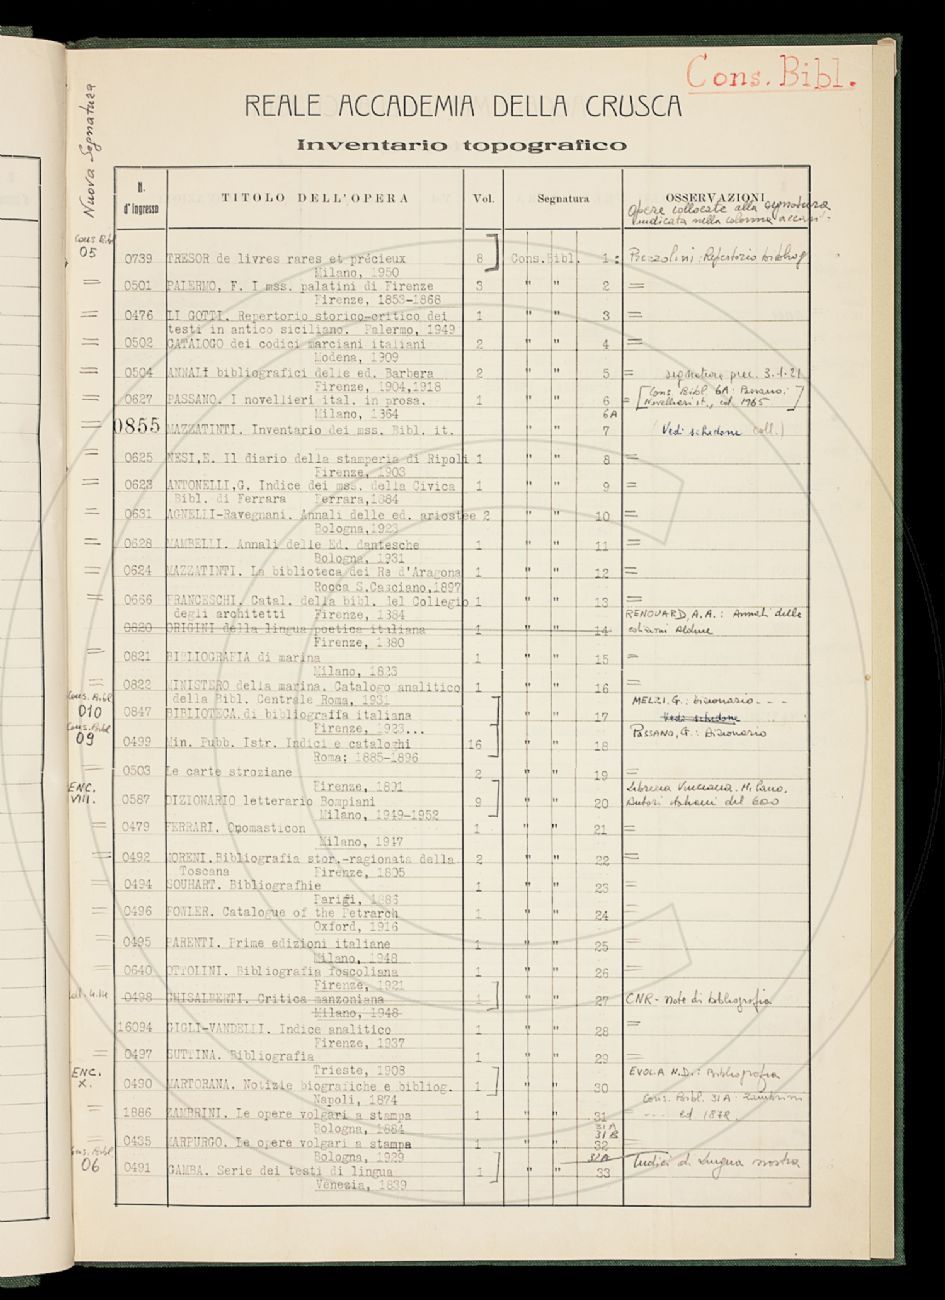 Cons. Bibl.
REALE ACCADEMIA DELLA CRUSCA
Inventario topografico
Nuova Segnatura
N. d'ingresso TITOLO DELL'OPERA Vol. Segnatura OSSERVAZIONI
Opere collocate alla segnatura
indicata nella colonna accan-
Cons Bibl
05
0739 TRESOR de livres rares et précieux 8 Cons.Bibl. 1: Prezzolini: Repertorio bibliog
Milano, 1950
= 0501 PALERMO, F. I mss. palatini di Firenze 3 " " 2 =
Firenze, 1853-1868
= 0476 LI GOTTI. Repertorio storico-critico dei 1 " " 3 =
testi in antico siciliano. Palermo, 1949
= 0502 CATALOGO dei codici marciani italiani 2 " " 4 =
Modena, 1909
= 0504 ANNALI bibliografici delle ed. Barbera 2 " " 5 = segnatura prec. 3.1.21
Firenze, 1904,1918
= 0627 PASSANO. I novellieri ital. in prosa. 1 " " 6 = [Cons. Bibl. 6A: Passano:
Novellieri it., ed. 1965]
Milano, 1864 6A
= 0855 MAZZATINTI. Inventario dei mss. Bibl. it. " " 7 (Vedi schedone coll.)
= 0625 NESI,E. Il diario della stamperia di Ripoli 1 " " 8 =
Firenze, 1903
= 0623 ANTONELLI,G. Indice dei mss. della Civica 1 " " 9 =
Bibl. di Ferrara Ferrara,1884
= 0631 AGNELLI-Ravegnani. Annali delle ed. ariostee 2 " " 10 =
Bologna,1923
= 0628 MAMBELLI. Annali delle Ed. dantesche 1 " " 11 =
Bologna, 1931
= 0624 MAZZATINTI. La biblioteca dei Re d'Aragona 1 " " 12 =
Rocca S.Casciano,1897
= 0666 FRANCESCHI. Catal. della bibl. del Collegio 1 " " 13 =
degli architetti Firenze, 1884 RENOUARD, A.A.: Annali delle
0820 ORIGINI della lingua poetica italiana 1 " " 14 edizioni Aldine
Firenze, 1880
= 0821 BIBLIOGRAFIA di marina 1 " " 15 =
Milano, 1823
= 0822 MINISTERO della marina. Catalogo analitico 1 " " 16 =
della Bibl. Centrale Roma, 1931
Cons. Bibl
010
0847 BIBLIOTECA di bibliografia italiana " " 17 MELZI, G.: Dizionario - - -
Vedi schedone
Firenze, 1923...
Cons. Bibl
09
0499 Min. Pubb. Istr. Indici e cataloghi 16 " " 18 PASSANO, G.: Dizionario
Roma; 1885-1896
0503 Le carte stroziane 2 " " 19 =
Firenze, 1891
ENC.
VIII.
0587 DIZIONARIO letterario Bompiani 9 " " 20 Libreria Vinciana.
Autori italiani del 600
Milano, 1949-1952
= 0479 FERRARI. Onomasticon 1 " " 21 =
Milano, 1947
= 0492 MORENI.Bibliografia stor.-ragionata della 2 " " 22 =
Toscana Firenze, 1805
= 0494 SOUHART. Bibliografhie 1 " " 23 =
Parigi, 1886
= 0496 FOWLER. Catalogue of the Petrarch 1 " " 24 =
Oxford, 1916
= 0495 PARENTI. Prime edizioni italiane 1 " " 25 =
Milano, 1948
= 0640 OTTOLINI. Bibliografia foscoliana 1 " " 26 =
Firenze, 1921
0498 GHISALBERTI. Critica manzoniana 1 " " 27 CNR - Note di bibliografia
Milano, 1948
16094 GIGLI-VANDELLI. Indice analitico 1 " " 28 =
Firenze, 1937
= 0497 SUTTINA. Bibliografia 1 " " 29 =
Trieste, 1908
ENC.
X.
0490 MARTORANA. Notizie biografiche e bibliog. 1 " " 30 EVOLA N.D.: Bibliografia
Napoli, 1874
= 1886 ZAMBRINI. Le opere volgari a stampa 1 " " 31 Cons. Bibl. 31A: Zambrini
- - - ed 1878
Bologna, 1884 31A
31B
= 0435 MARPURGO. Le opere volgari a stampa 1 " " 32 =
Bologna, 1929 32A
Cons. Bibl
06
0491 GAMBA. Serie dei testi di lingua 1 " " 33 Indici di Lingua nostra
Venezia, 1839